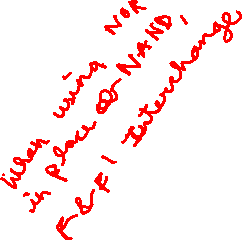 When using NOR
in place of NAND,
r & r̄ interchange